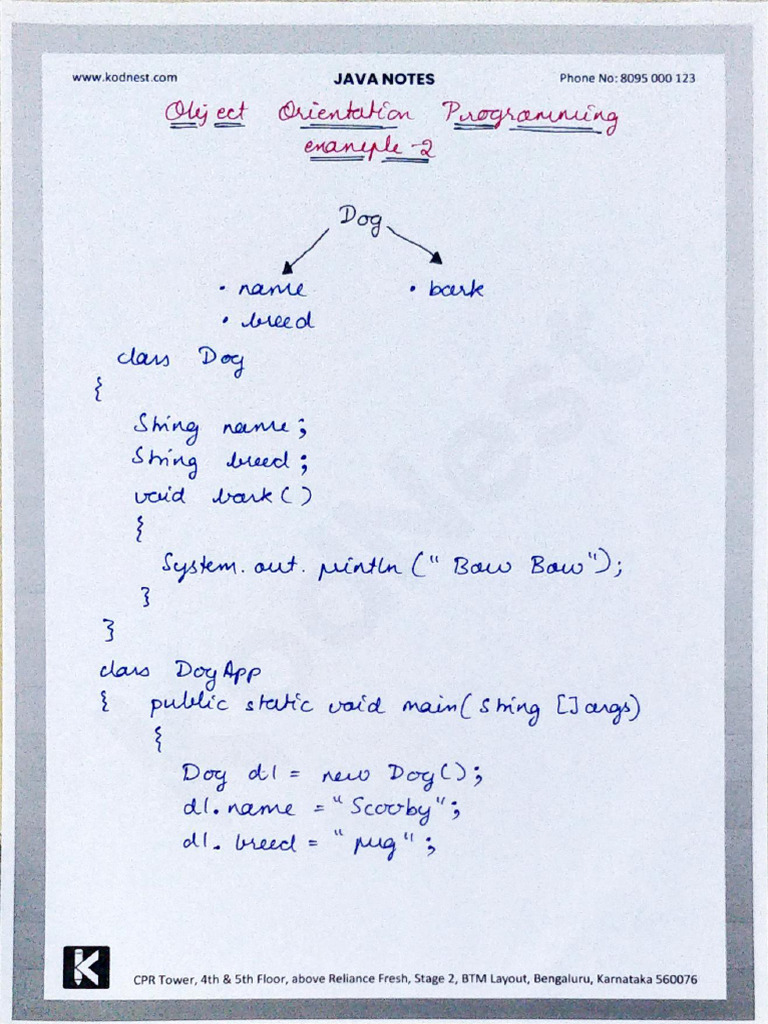 www.kodnest.com JAVA NOTES Phone No: 8095 000 123
Object Orientation Programming
example-2
Dog
• name • bark
• breed
class Dog
{
String name;
String breed;
void bark()
{
System.out.println("Bow Bow");
}
}
class DogApp
{ public static void main(String []args)
{
Dog d1 = new Dog();
d1.name = "Scooby";
d1.breed = "pug";
KodNest
K
CPR Tower, 4th & 5th Floor, above Reliance Fresh, Stage 2, BTM Layout, Bengaluru, Karnataka 560076